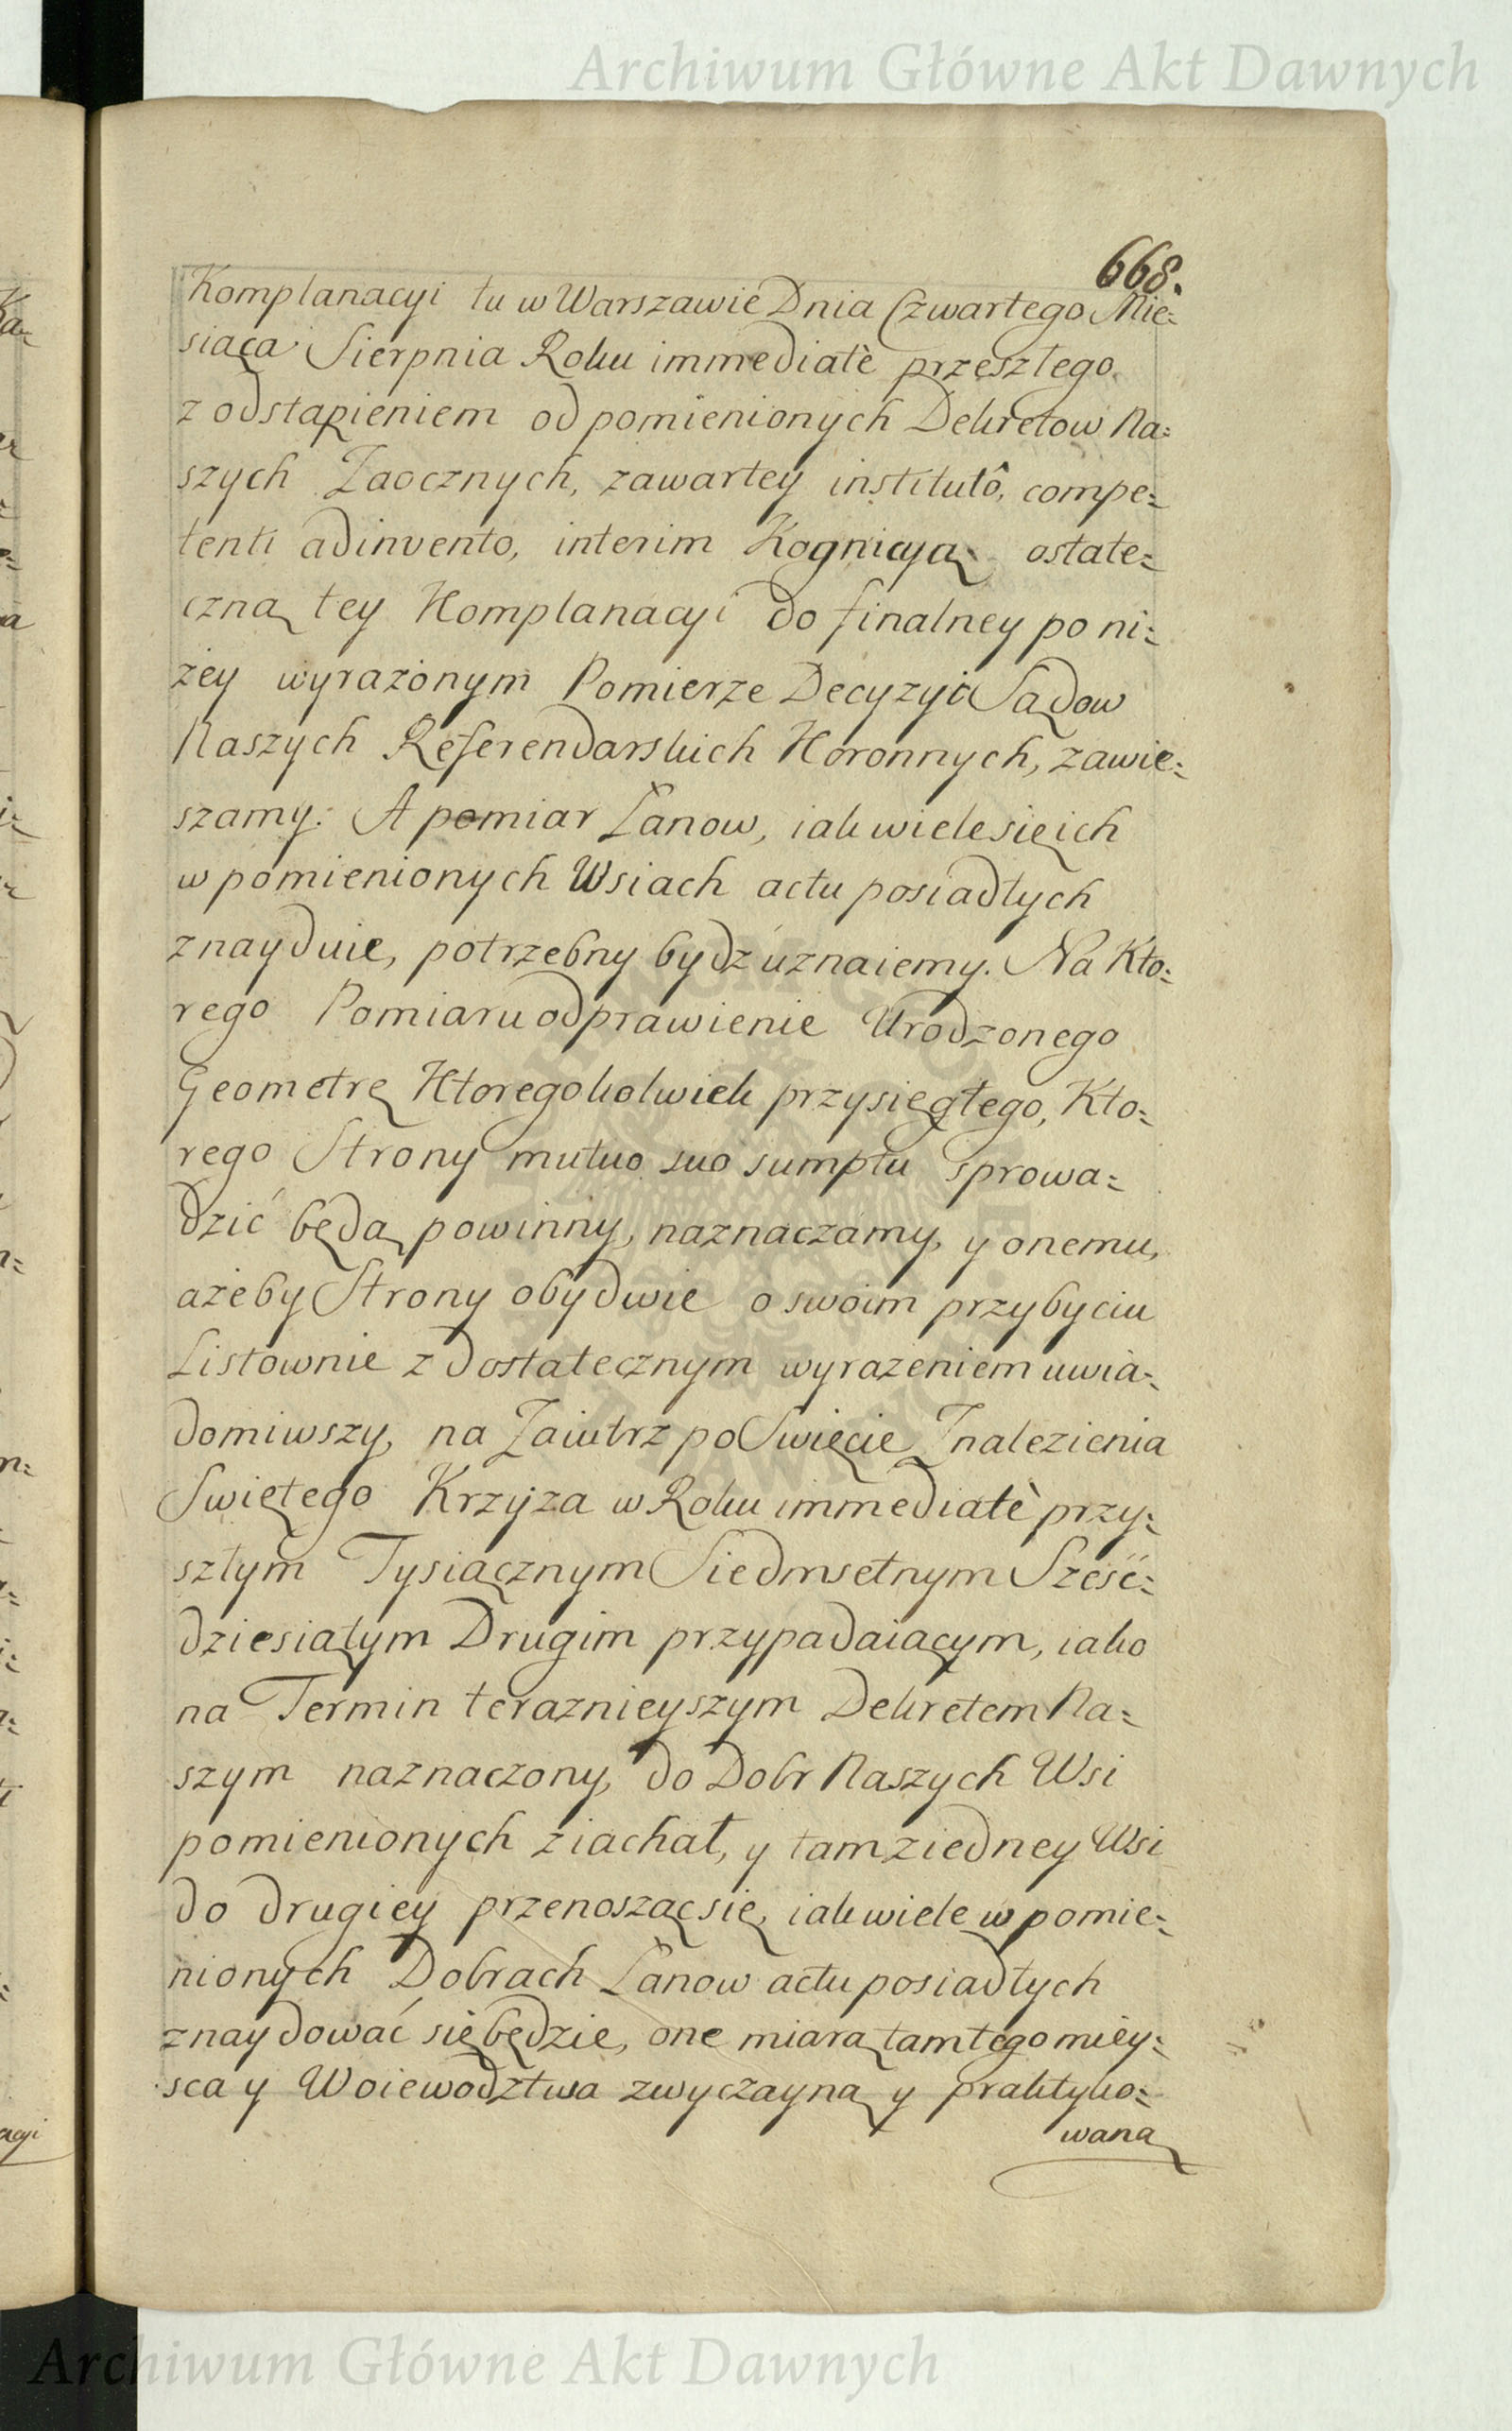 Archiwum Główne Akt Dawnych
668.
Komplanacyi tu w Warszawie Dnia Czwartego Mie=
siąca Sierpnia Roku immediatè przeszłego
z odstąpieniem od pomienionych Dekretow Na=
szych Zaocznych, zawartey institutô, compe=
tenti adinvento, interim Kognicyą ostate=
czną tey Komplanacyi do finalney po ni=
żey wyrażonym Pomierze Decyzyi Sądow
Naszych Referendarskich Koronnych, zawie=
szamy. A pomiar Łanow, iak wiele się ich
w pomienionych Wsiach actu posiadłych
znayduie, potrzebny bydź uznaiemy. Na Kto=
rego Pomiaru odprawienie Urodzonego
Geometrę Ktoregokolwiek przysięgłego, Kto=
rego Strony mutuo suo sumptu sprowa=
dzić będą powinny, naznaczamy, y onemu,
ażeby Strony obydwie o swoim przybyciu
Listownie z dostatecznym wyrażeniem uwia=
domiwszy, na Zaiutrz po Swięcie Znalezienia
Swiętego Krzyża w Roku immediatè przy=
szłym Tysiącznym Siedmsetnym Sześć=
dziesiątym Drugim przypadaiącym, iako
na Termin teraznieyszym Dekretem Na=
szym naznaczony, do Dobr Naszych Wsi
pomienionych ziachał, y tam z iedney Wsi
do drugiey przenosząc się, iak wiele w pomie=
nionych Dobrach Łanow actu posiadłych
znaydować się będzie, one miarą tamtego miey=
sca y Woiewodztwa zwyczayną y praktyko=
waną
Archiwum Główne Akt Dawnych